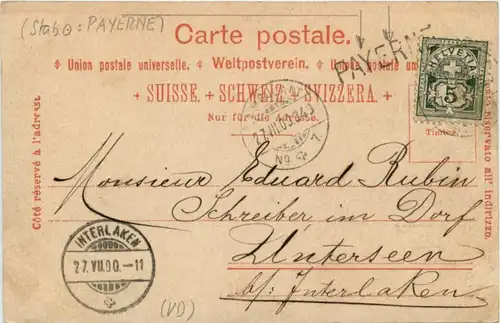 (Stabo: PAYERNE)
Carte postale.
PAYERNE
Union postale universelle. Weltpostverein. Union postale
SUISSE. SCHWEIZ. SVIZZERA.
Nur für die Adresse.
HELVETIA
5
27.VII.00
No 7
Côté réservé à l'adresse
riservato all indirizzo.
Monsieur Eduard Rubin
Schreiber im Dorf
Unterseen
b/ Interlaken
INTERLAKEN
27.VII.00.-11
(VD)